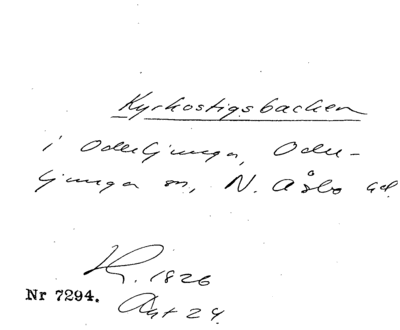 Kyrkostigsbacken
i Oderljunga, Oder-
ljunga sn, N. Åsbo hd.
1826
Nr 7294.
Akt 24.